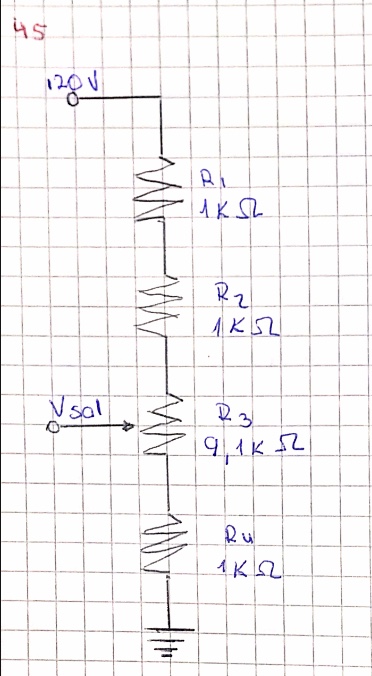 45
120V
R1
1KΩ
R2
1KΩ
Vsal
R3
9,1KΩ
R4
1KΩ